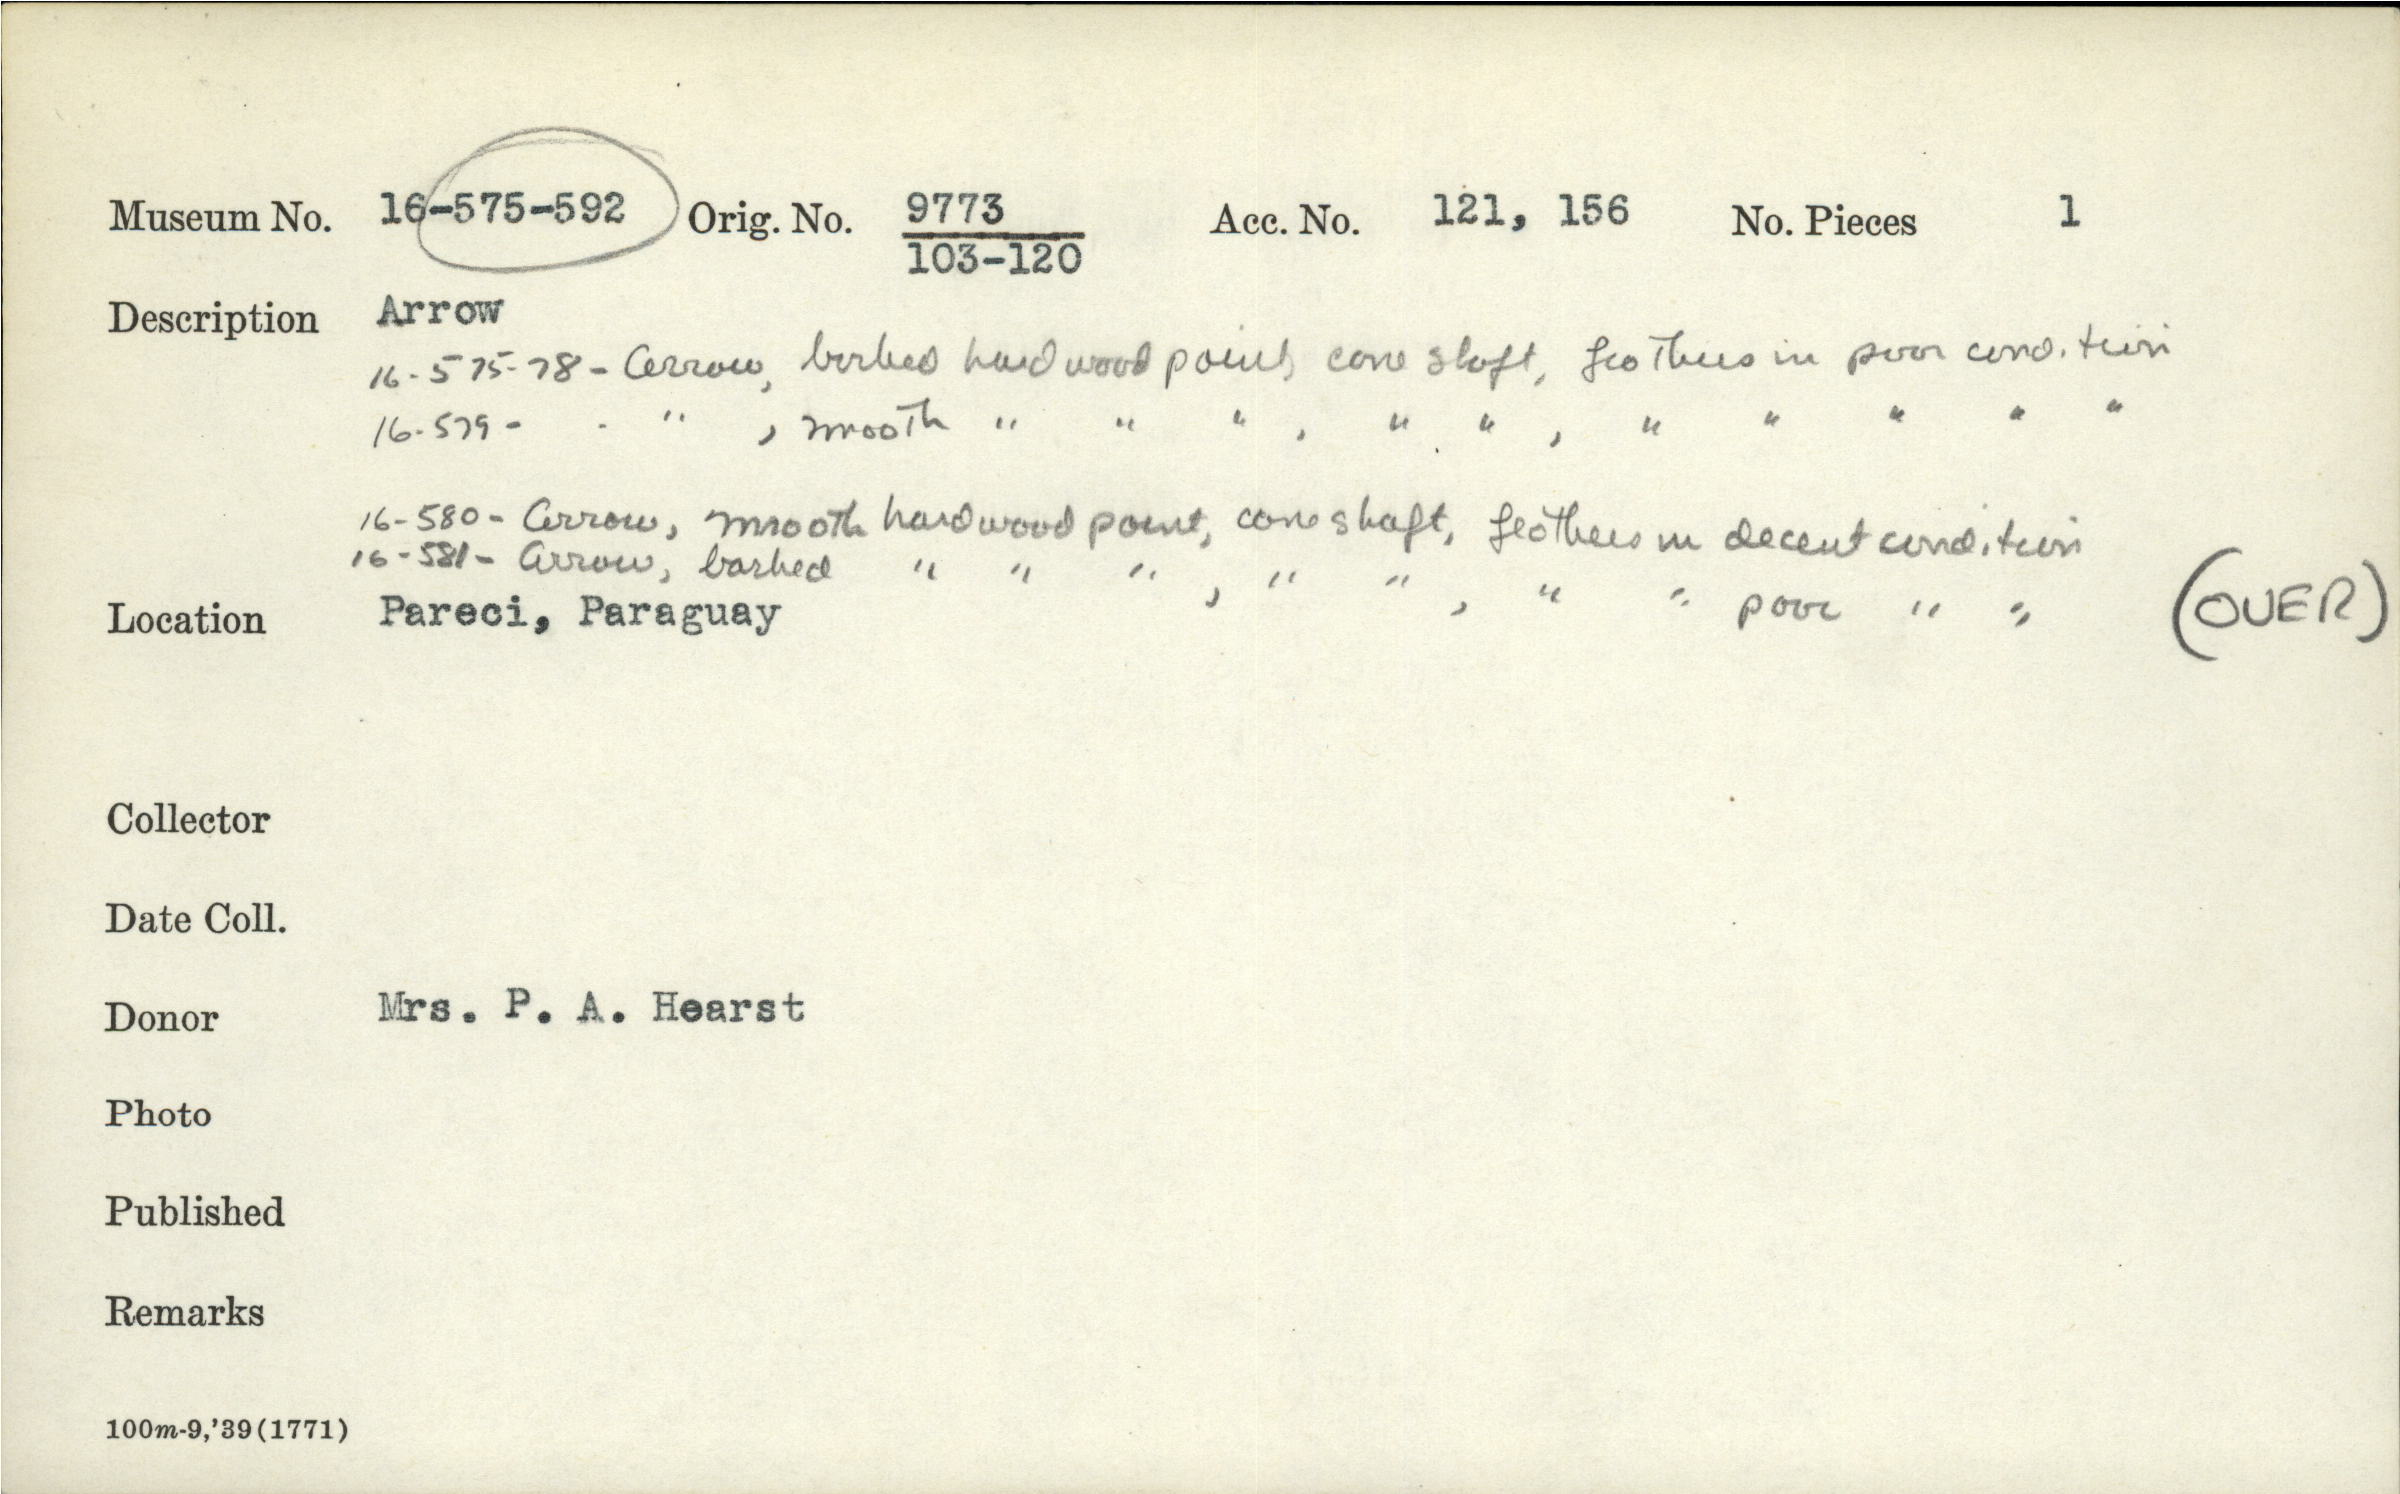 Museum No. 16-575-592 Orig. No. 9773 Acc. No. 121, 156 No. Pieces 1
103-120
Description Arrow
16-575-78 - Arrow, barbed hardwood point, cane shaft, feathers in poor condition
16-579 - " , smooth " " " , " " , " " " " "
16-580 - Arrow, smooth hardwood point, cane shaft, feathers in decent condition
16-581 - Arrow, barbed " " " , " " , " " poor " "
Location Pareci, Paraguay (OVER)
Collector
Date Coll.
Donor Mrs. P. A. Hearst
Photo
Published
Remarks
100m-9,'39(1771)